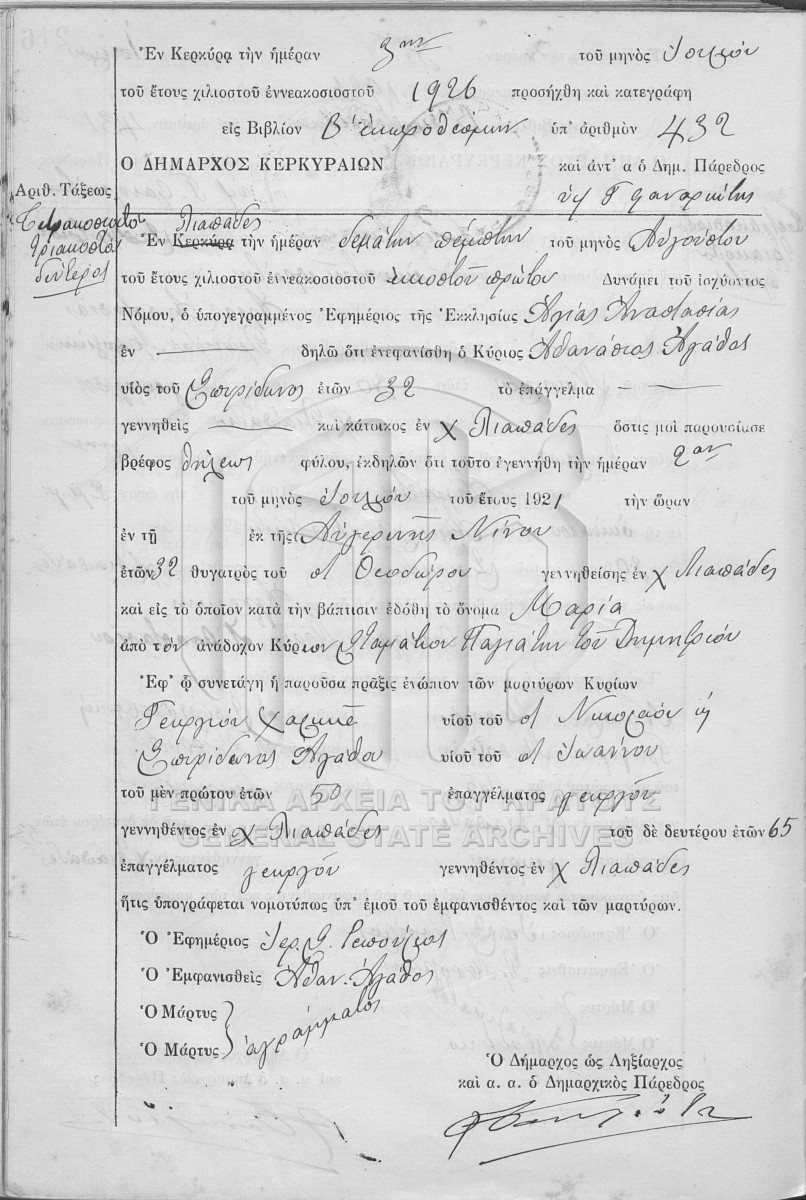 Ἐν Κερκύρᾳ τὴν ἡμέραν 3ην τοῦ μηνὸς Ἰουλίου
τοῦ ἔτους χιλιοστοῦ ἐννεακοσιοστοῦ 1926 προσήχθη καὶ κατεγράφη
εἰς Βιβλίον Β ἐκπροθέσμων ὑπ' ἀριθμὸν 432
Ο ΔΗΜΑΡΧΟΣ ΚΕΡΚΥΡΑΙΩΝ καὶ ἀντ' α ὁ Δημ. Πάρεδρος
Ἀριθ. Τάξεως
Τετρακοστὸς Λιαπάδες
τριακοστὸς
δεύτερος
Ἐν Κερκύρᾳ τὴν ἡμέραν δεκάτην πέμπτην τοῦ μηνὸς Αὐγούστου
τοῦ ἔτους χιλιοστοῦ ἐννεακοσιοστοῦ εἰκοστοῦ πρώτου Δυνάμει τοῦ ἰσχύοντος
Νόμου, ὁ ὑπογεγραμμένος Ἐφημέριος τῆς Ἐκκλησίας Ἁγίας Ἀναστασίας
ἐν — δηλῶ ὅτι ἐνεφανίσθη ὁ Κύριος Ἀθανάσιος Ἀγάθος
υἱὸς τοῦ Σπυρίδωνος ἐτῶν 32 τὸ ἐπάγγελμα —
γεννηθεὶς — καὶ κάτοικος ἐν χ Λιαπάδες ὅστις μοὶ παρουσίασε
βρέφος θήλεως φύλου, ἐκδηλῶν ὅτι τοῦτο ἐγεννήθη τὴν ἡμέραν 2αν
τοῦ μηνὸς Ἰουλίου τοῦ ἔτους 1921 τὴν ὥραν
ἐν τῇ ἐκ τῆς Αὐγερινῆς Νίνου
ἐτῶν 32 θυγατρὸς τοῦ Θεοδώρου γεννηθείσης ἐν χ Λιαπάδες
καὶ εἰς τὸ ὁποῖον κατὰ τὴν βάπτισιν ἐδόθη τὸ ὄνομα Μαρία
ἀπὸ τὸν ἀνάδοχον Κύριον Σταμάτιον Παγιάτην τοῦ Δημητρίου
Ἐφ' ᾧ συνετάγη ἡ παροῦσα πρᾶξις ἐνώπιον τῶν μαρτύρων Κυρίων
Γεωργίου υἱοῦ τοῦ Νικολάου ἢ
Σπυρίδωνος Ἀγάθου υἱοῦ τοῦ Ἰωάννου
τοῦ μὲν πρώτου ἐτῶν 50 ἐπαγγέλματος γεωργοῦ
ΓΕΝΙΚΑ ΑΡΧΕΙΑ ΤΟΥ ΚΡΑΤΟΥΣ
γεννηθέντος ἐν χ Λιαπάδες τοῦ δὲ δευτέρου ἐτῶν 65
GENERAL STATE ARCHIVES
ἐπαγγέλματος γεωργοῦ γεννηθέντος ἐν χ Λιαπάδες
ἥτις ὑπογράφεται νομοτύπως ὑπ' ἐμοῦ τοῦ ἐμφανισθέντος καὶ τῶν μαρτύρων.
Ὁ Ἐφημέριος Ἱερ. Σ.
Ὁ Ἐμφανισθεὶς Ἀθαν. Ἀγάθος
Ὁ Μάρτυς
Ὁ Μάρτυς ἀγράμματος
Ὁ Δήμαρχος ὡς Ληξίαρχος
καὶ α. α. ὁ Δημαρχικὸς Πάρεδρος